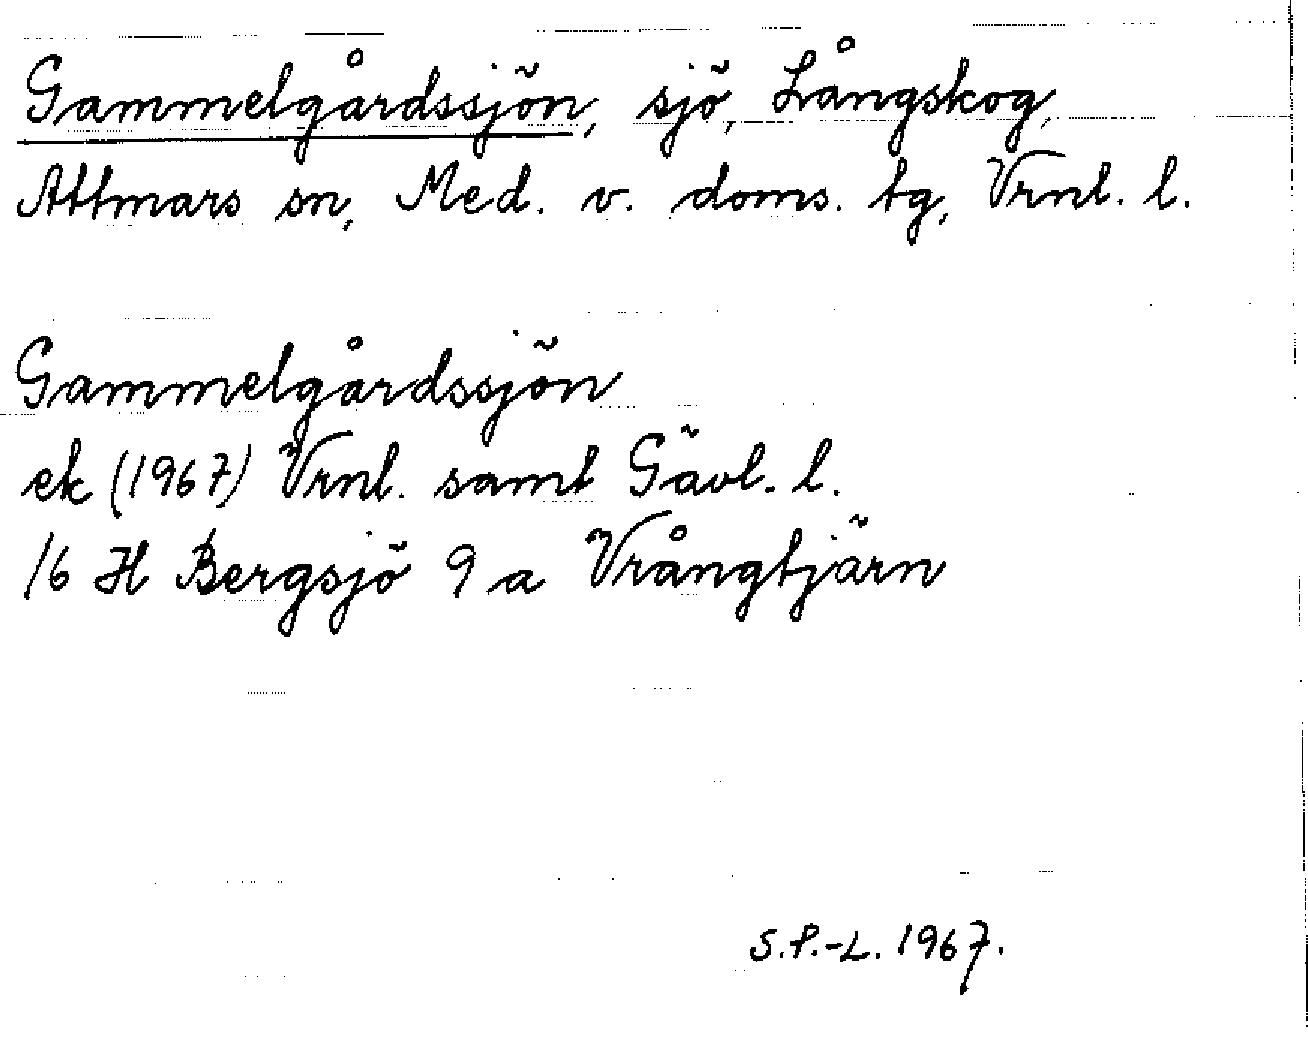 Gammelgårdssjön, sjö, Långskog,
Attmars sn, Med. v. doms. tg, Vrnl. l.
Gammelgårdssjön
ek (1967) Vrnl. samt Gävl. l.
16 H Bergsjö 9 a Vrångtjärn
S.P.-L. 1967.